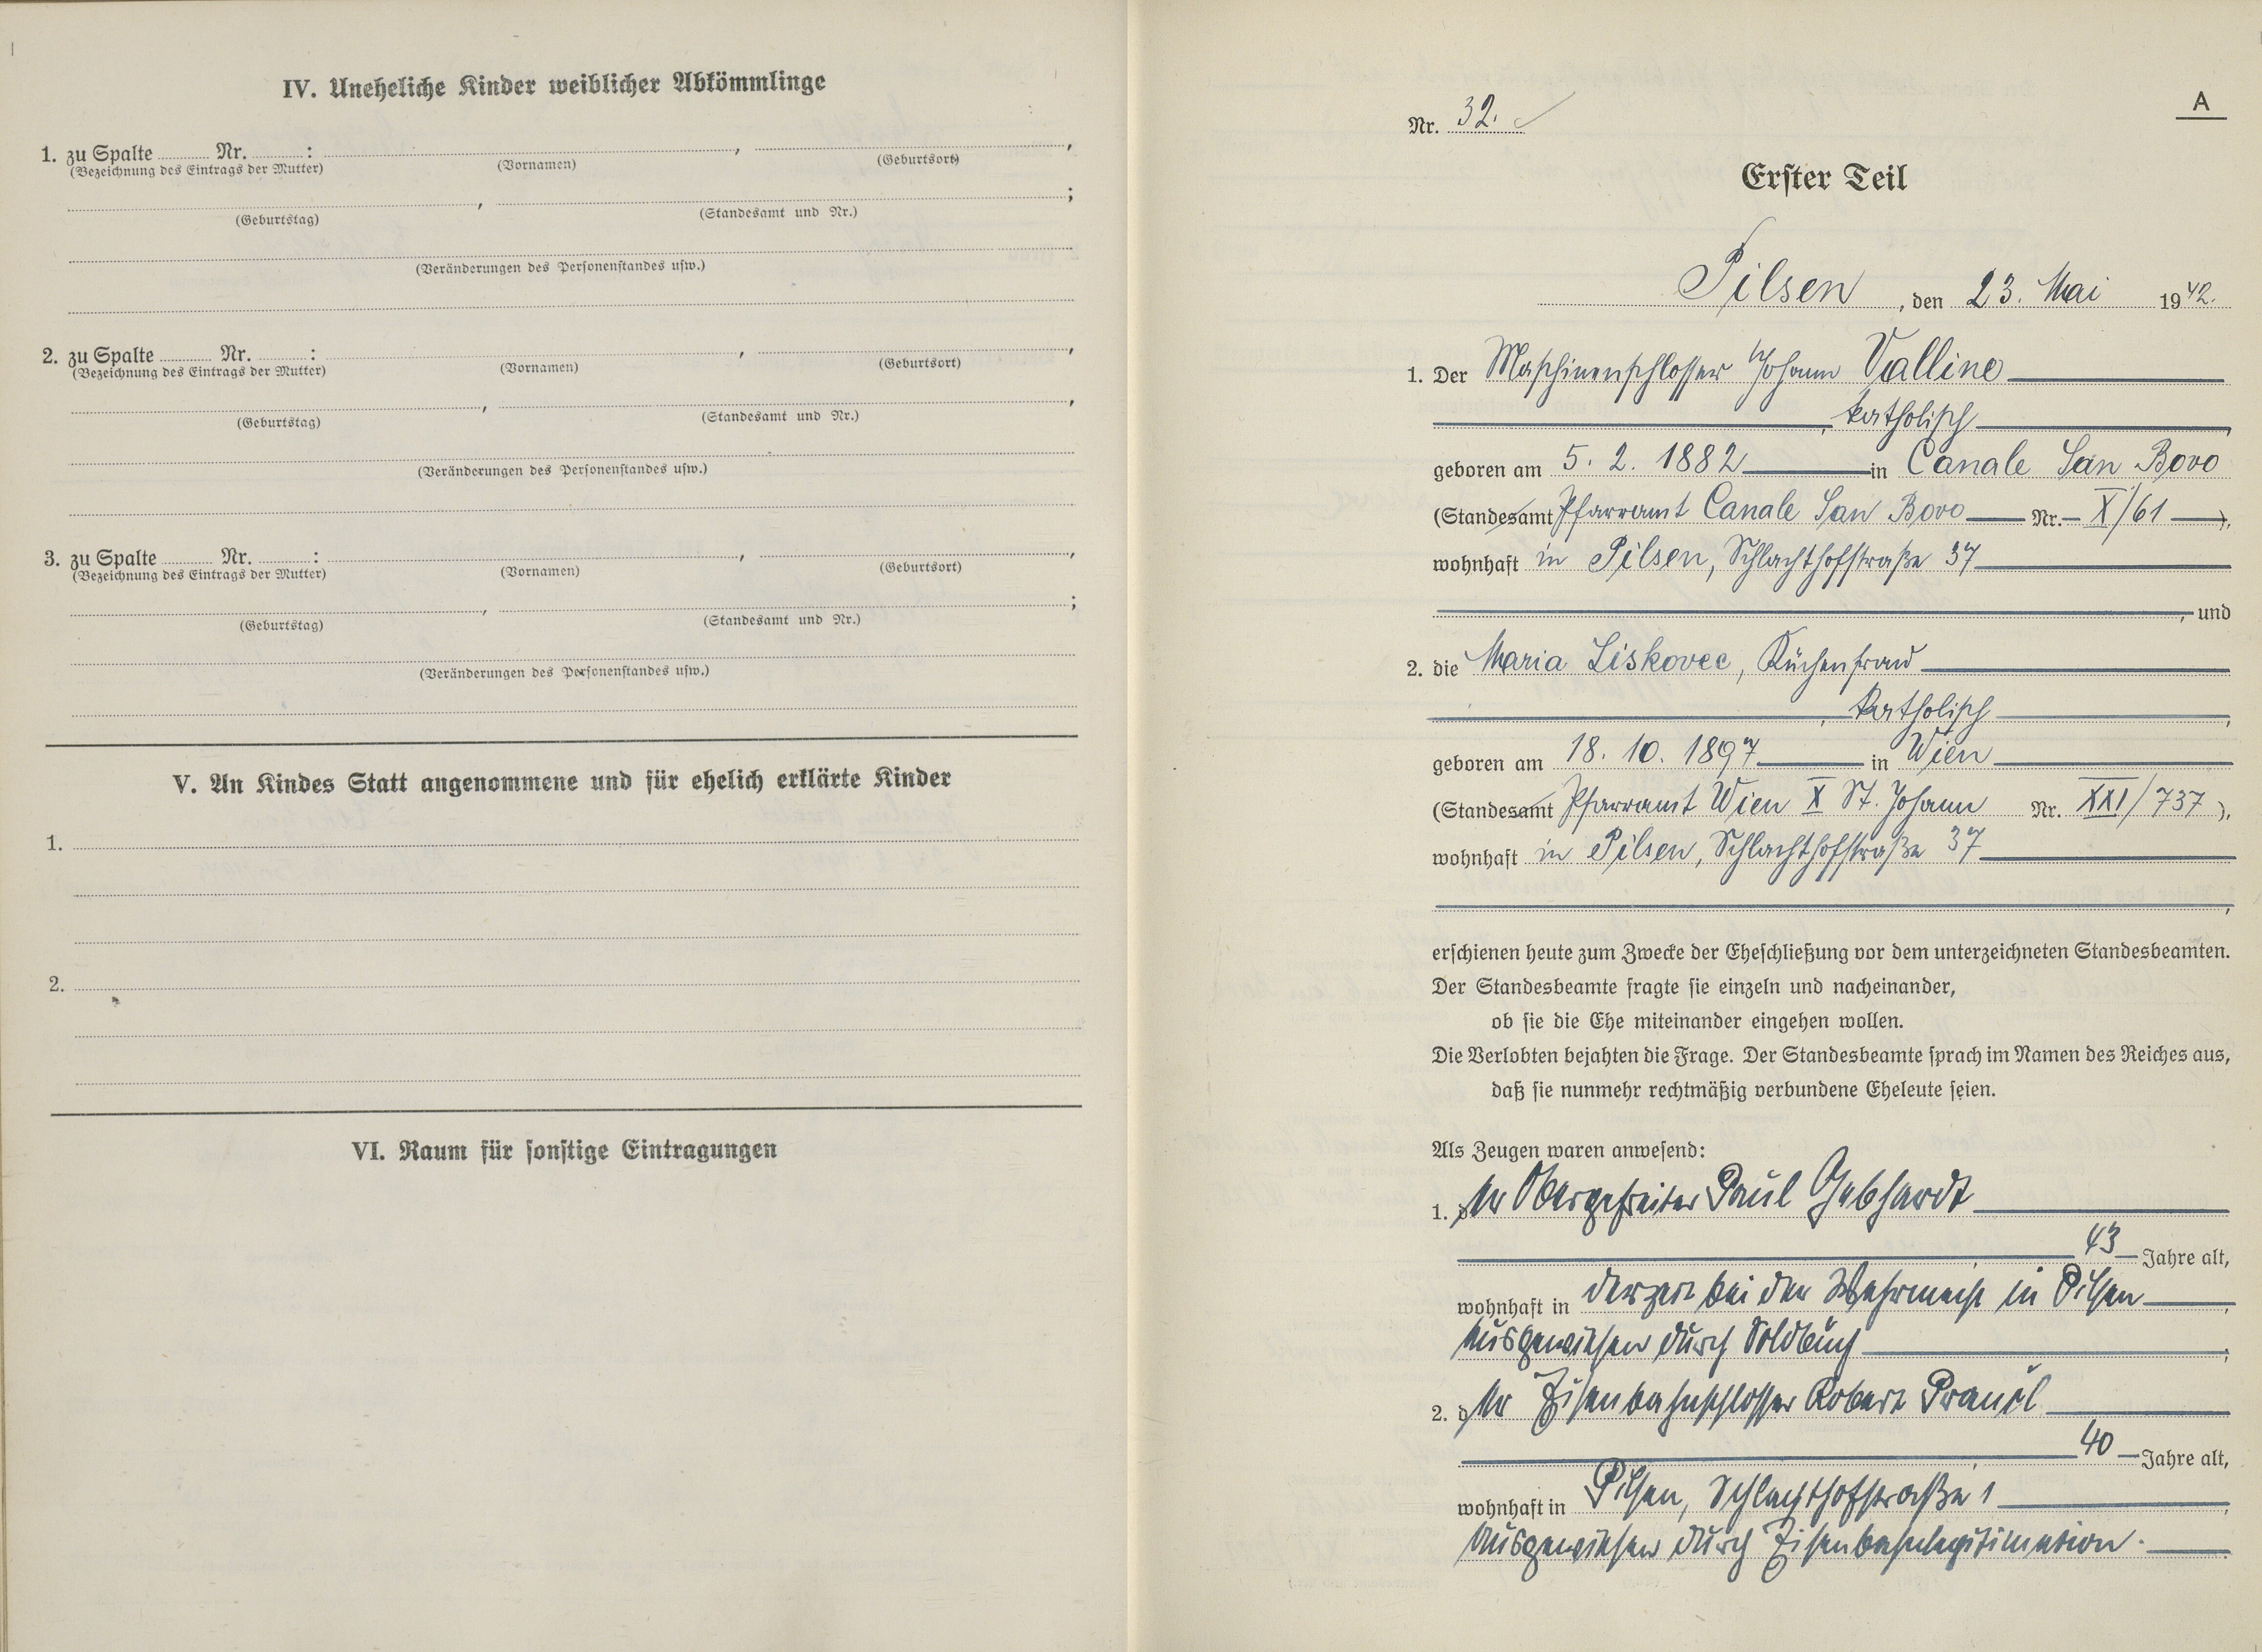 IV. Uneheliche Kinder weiblicher Abkömmlinge
1. zu Spalte ........ Nr. ........ :
(Bezeichnung des Eintrags der Mutter) (Vornamen) (Geburtsort)
(Geburtstag) (Standesamt und Nr.)
(Veränderungen des Personenstandes usw.)
2. zu Spalte ........ Nr. ........ :
(Bezeichnung des Eintrags der Mutter) (Vornamen) (Geburtsort)
(Geburtstag) (Standesamt und Nr.)
(Veränderungen des Personenstandes usw.)
3. zu Spalte ........ Nr. ........ :
(Bezeichnung des Eintrags der Mutter) (Vornamen) (Geburtsort)
(Geburtstag) (Standesamt und Nr.)
(Veränderungen des Personenstandes usw.)
V. An Kindes Statt angenommene und für ehelich erklärte Kinder
1.
2.
VI. Raum für sonstige Eintragungen
A
Nr. 32.
Erster Teil
Pilsen, den 23. Mai 1942.
1. Der Maschinenschlosser Johann Valline
, katholisch,
geboren am 5. 2. 1882 in Canale San Bovo
(Standesamt Pfarramt Canale San Bovo Nr. X/61),
wohnhaft in Pilsen, Schlachthofstraße 37
, und
2. die Maria Liskovec, Küchenfrau
, katholisch,
geboren am 18. 10. 1897 in Wien
(Standesamt Pfarramt Wien X St. Johann Nr. XXI/737),
wohnhaft in Pilsen, Schlachthofstraße 37
,
erschienen heute zum Zwecke der Eheschließung vor dem unterzeichneten Standesbeamten.
Der Standesbeamte fragte sie einzeln und nacheinander,
ob sie die Ehe miteinander eingehen wollen.
Die Verlobten bejahten die Frage. Der Standesbeamte sprach im Namen des Reiches aus,
daß sie nunmehr rechtmäßig verbundene Eheleute seien.
Als Zeugen waren anwesend:
1. der Obergefreiter Paul Gebhardt
43 Jahre alt,
wohnhaft in derzeit bei der Wehrmacht in Pilsen,
ausgewiesen durch Soldbuch;
2. der Eisenbahnschlosser Robert
, 40 Jahre alt,
wohnhaft in Pilsen, Schlachthofstraße 1,
ausgewiesen durch Eisenbahnlegitimation.